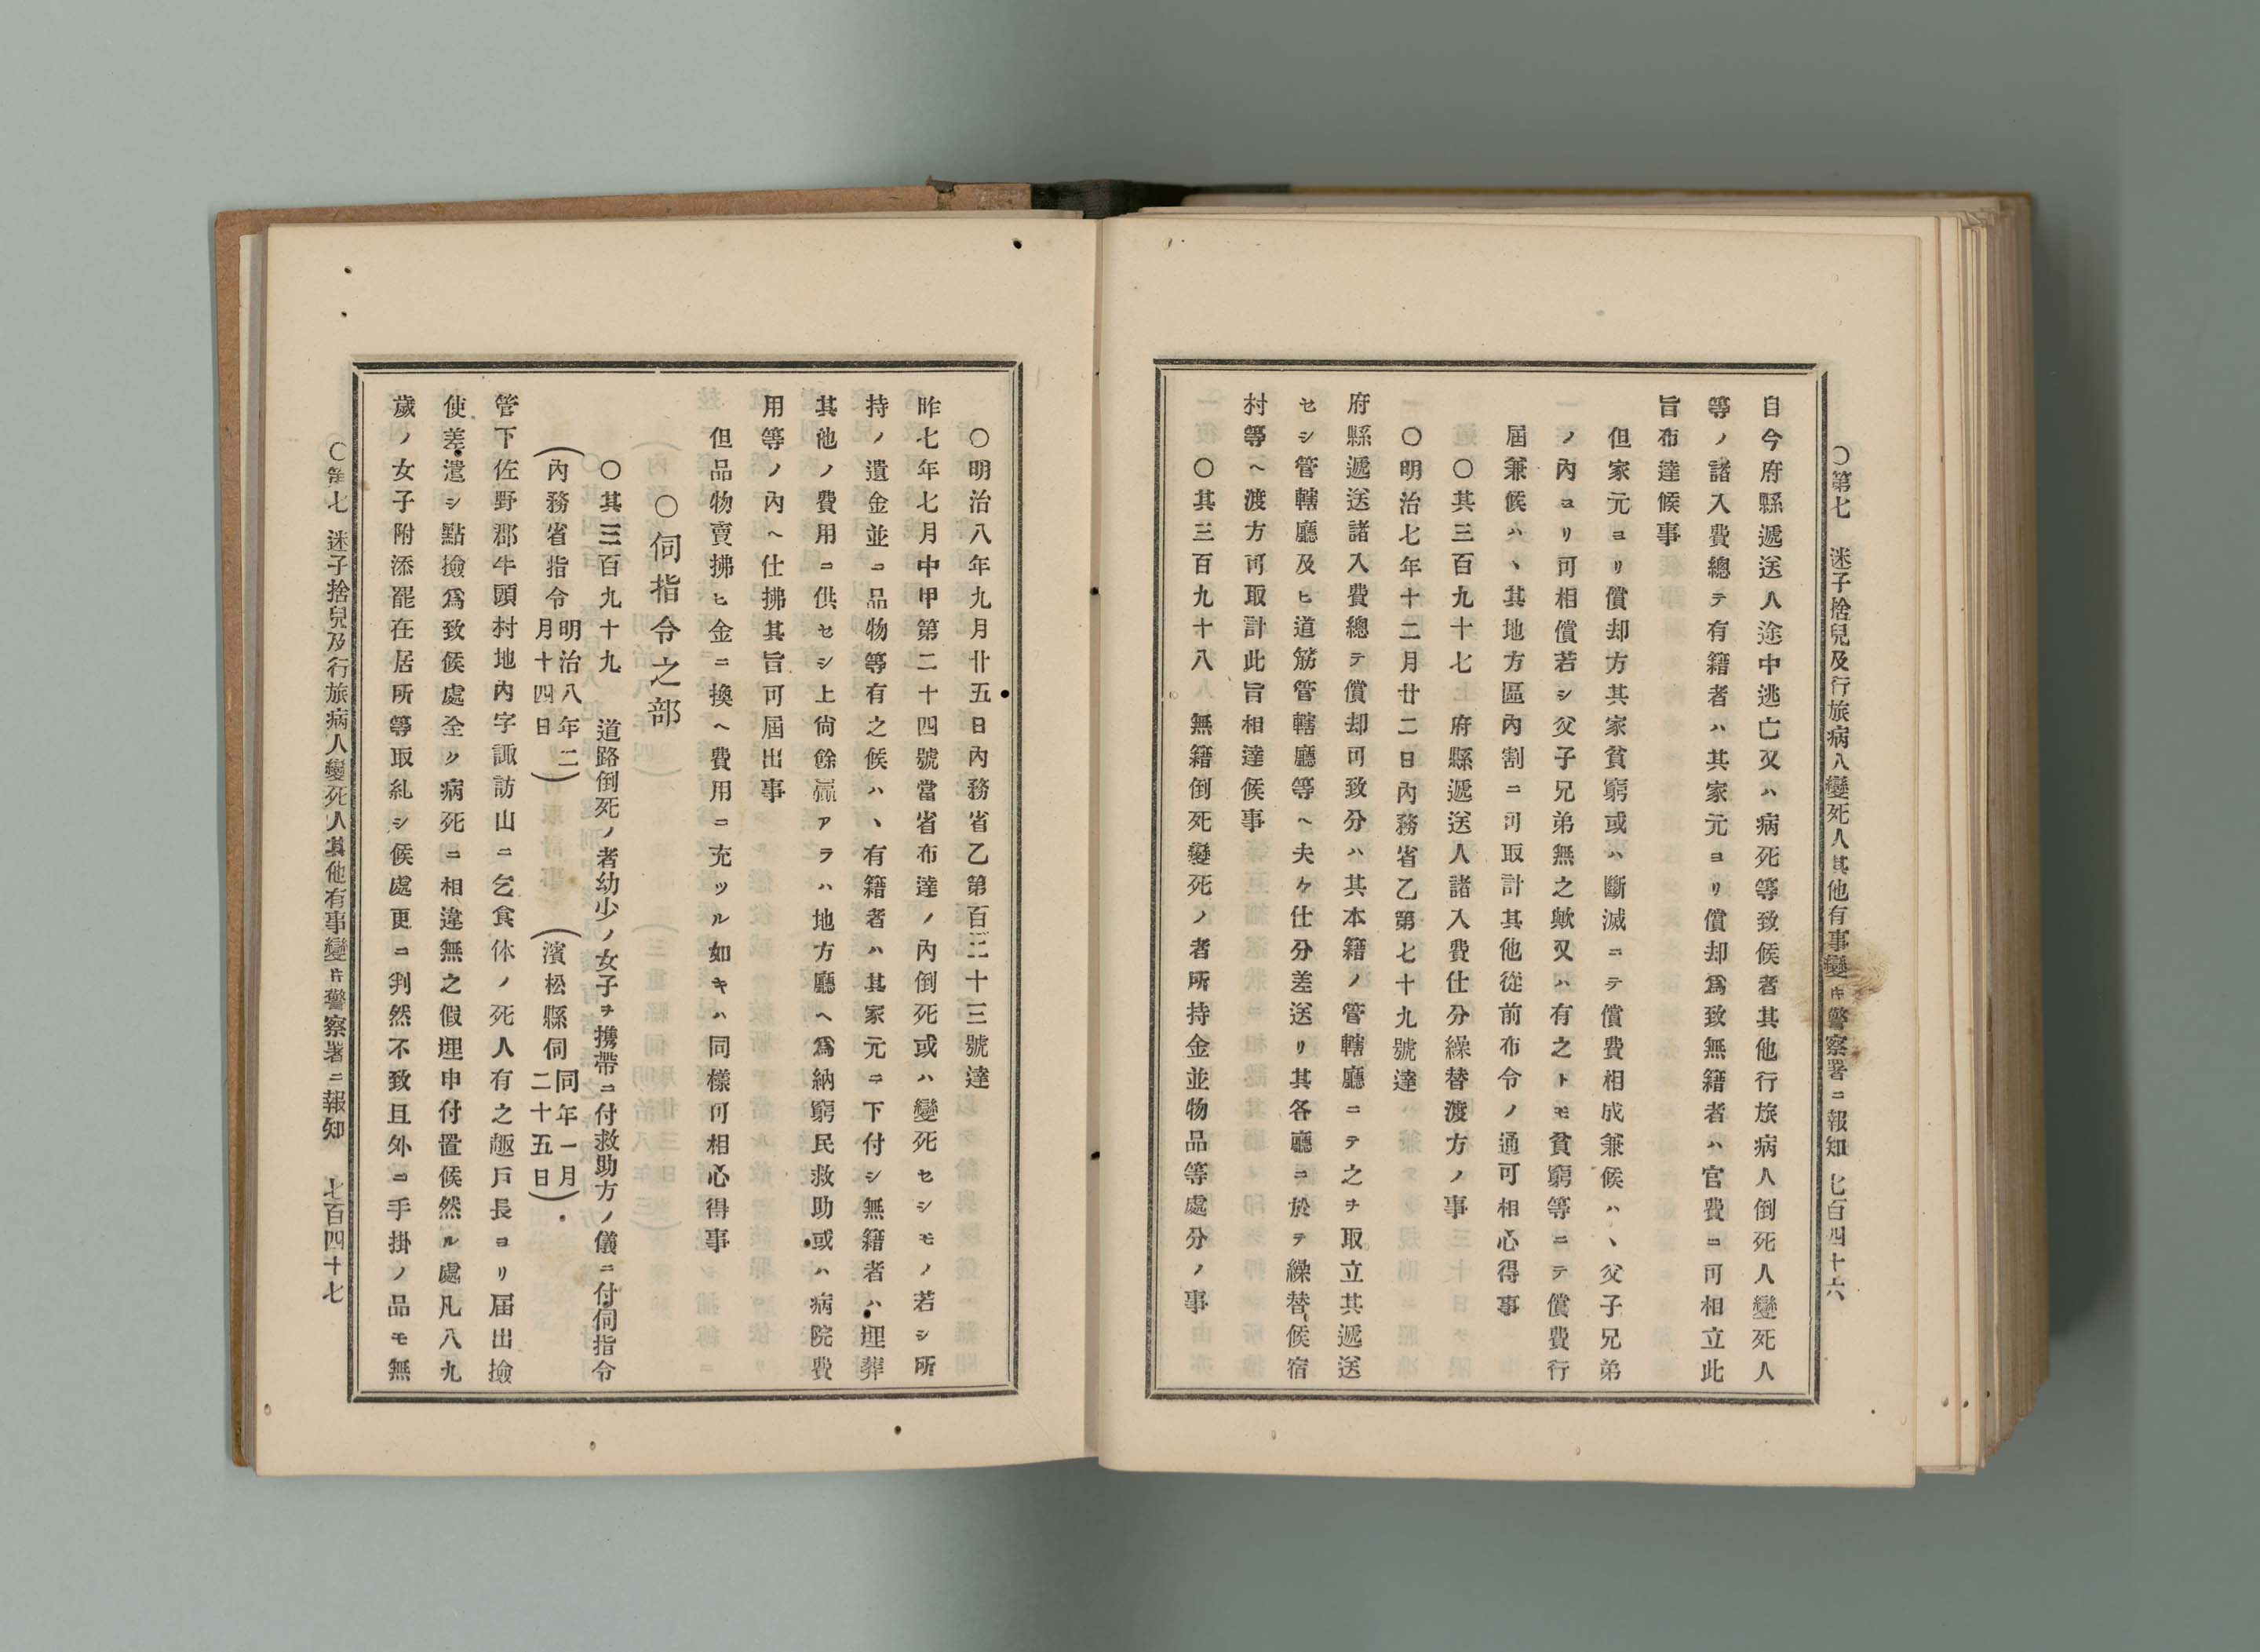 ○第七　迷子捨兒及行旅病人變死人其他有事變キ警察署ニ報知　七百四十六
自今府縣遞送人途中逃亡又ハ病死等致候者其他行旅病人倒死人變死人
等ノ諸入費總テ有籍者ハ其家元ヨリ償却爲致無籍者ハ官費ニ可相立此
旨布達候事
但家元ヨリ償却方其家貧窮或ハ斷滅ニテ償費相成兼候ハヽ父子兄弟
ノ內ヨリ可相償若シ父子兄弟無之歟又ハ有之トモ貧窮等ニテ償費行
屆兼候ハヽ其地方區內割ニ可取計其他從前布令ノ通可相心得事
○其三百九十七　府縣遞送人諸入費仕分繰替渡方ノ事
○明治七年十二月廿二日內務省乙第七十九號達
府縣遞送諸入費總テ償却可致分ハ其本籍ノ管轄廳ニテ之ヲ取立其遞送
セシ管轄廳及ヒ道筋管轄廳等ヘ夫々仕分差送リ其各廳ニ於テ繰替候宿
村等ヘ渡方可取計此旨相達候事
○其三百九十八　無籍倒死變死ノ者所持金並物品等處分ノ事
○明治八年九月廿五日內務省乙第百二十三號達
昨七年七月中甲第二十四號當省布達ノ內倒死或ハ變死セシモノ若シ所
持ノ遺金並ニ品物等有之候ハヽ有籍者ハ其家元ニ下付シ無籍者ハ埋葬
其他ノ費用ニ供セシ上尙餘贏アラハ地方廳ヘ爲納窮民救助或ハ病院費
用等ノ內ヘ仕拂其旨可屆出事
但品物賣拂ヒ金ニ換ヘ費用ニ充ツル如キハ同樣可相心得事
○伺指令之部
○其三百九十九　道路倒死ノ者幼少ノ女子ヲ携帶ニ付救助方ノ儀ニ付伺指令
（內務省指令明治八年二月十四日）　（濱松縣伺同年一月二十五日）
管下佐野郡牛頭村地內字諏訪山ニ乞食体ノ死人有之趣戶長ヨリ届出撿
使差遣シ點撿爲致候處全ク病死ニ相違無之假埋申付置候然ル處凡八九
歲ノ女子附添罷在居所等取糺シ候處更ニ判然不致且外ニ手掛ノ品モ無
○第七　迷子捨兒及行旅病人變死人其他有事變キ警察署ニ報知　七百四十七